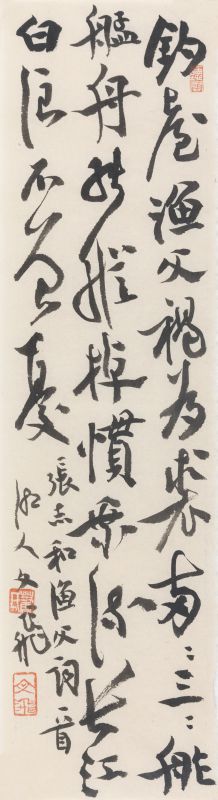 釣臺漁父褐為裘兩〻三〻舴
艋舟能縱棹慣乘流長江
白浪不曾憂
張志和漁父詞一首
湘人文飛